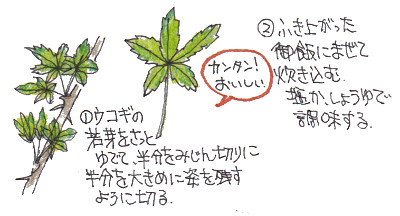 ①ウコギの
若芽をさっと
ゆでて、半分をみじん切りに
半分を大きめに姿を残す
ように切る。
カンタン!
おいしい
②ふき上がった
御飯にまぜて
炊き込む。
塩か、しょうゆで
調味する。